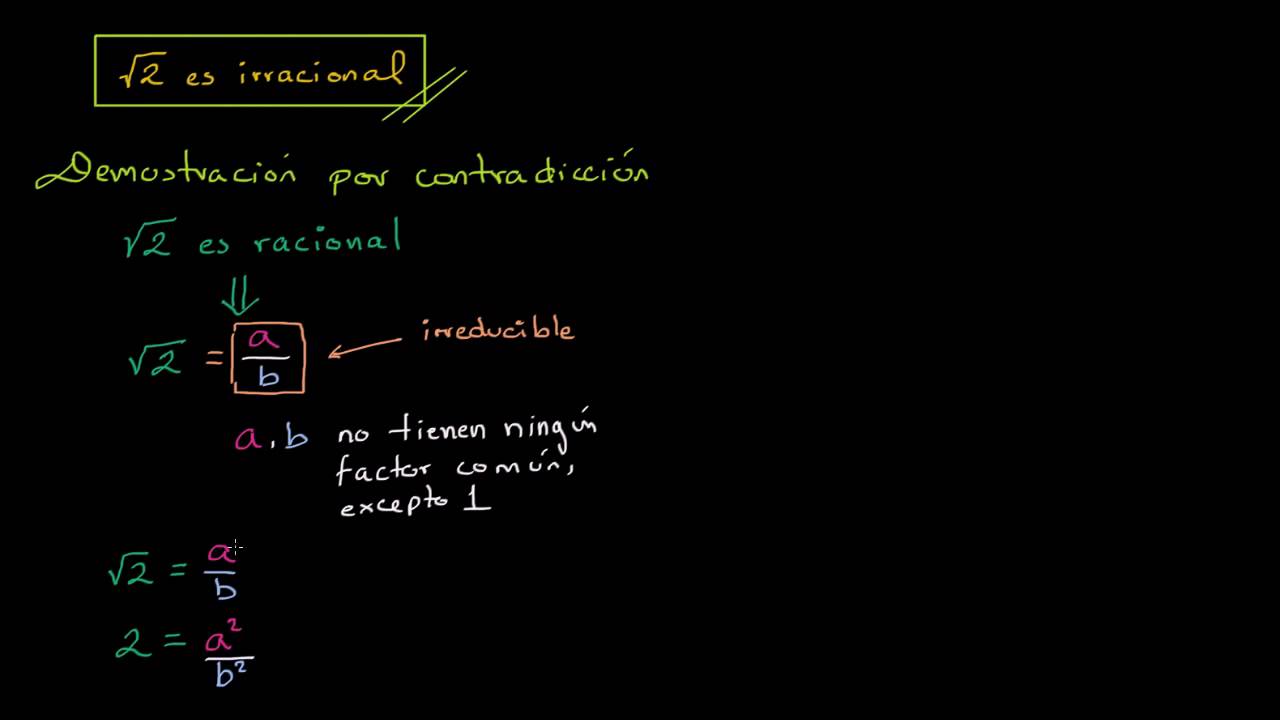 √2 es irracional
Demostración por contradicción
√2 es racional
⇓
√2 = a/b ← irreducible
a, b no tienen ningún
factor común,
excepto 1
√2 = a/b
2 = a²/b²